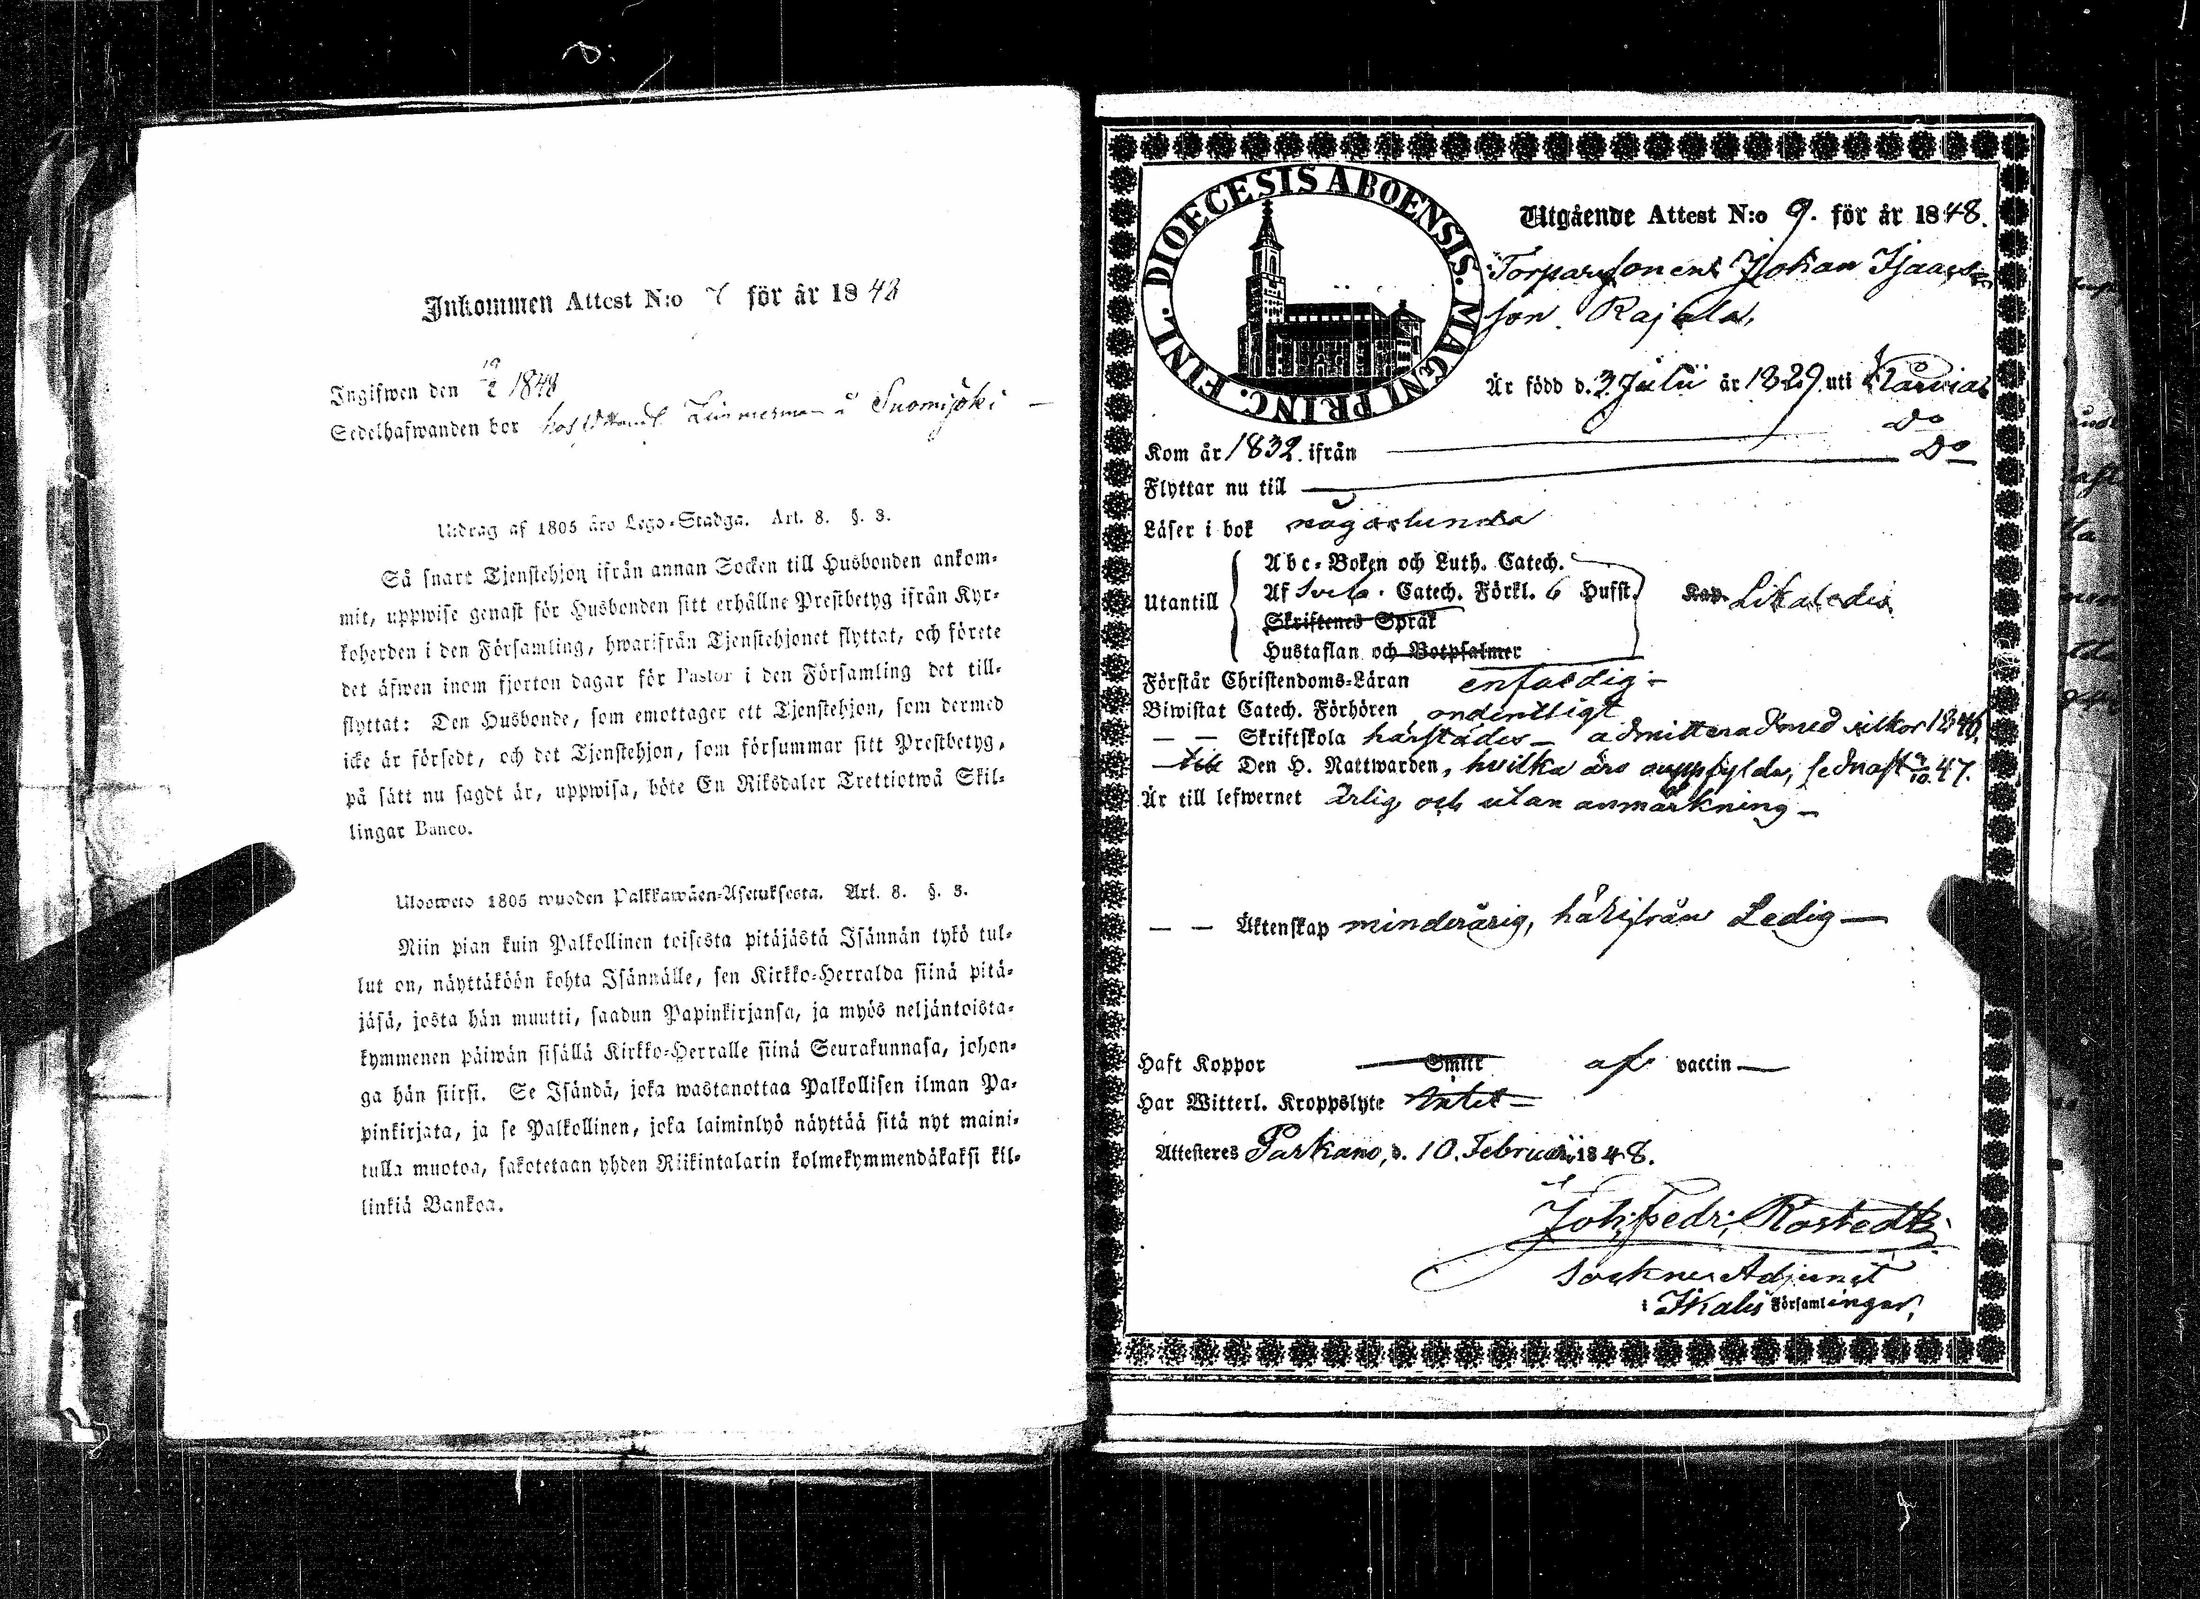 Inkommen Attest N:o 7 för år 1848
Ingifwen den 19/2 1848
Sedelhafwanden bor hos Zimmerman i Suomijoki —
Utdrag af 1805 års Lego-Stadga. Art. 8. §. 3.
Så snart Tjenstehjon ifrån annan Socken till Husbonden ankom-
mit, uppwise genast för Husbonden sitt erhållne Prestbetyg ifrån Kyr-
koherden i den Församling, hwarifrån Tjenstehjonet flyttat, och förete
det äfwen inom fjorton dagar för Pastor i den Församling det till-
flyttat: Den Husbonde, som emottager ett Tjenstehjon, som dermed
icke är försedt, och det Tjenstehjon, som försummar sitt Prestbetyg,
på sätt nu sagdt är, uppwisa, böte En Riksdaler Trettiotwå Skil-
lingar Banco.
Uloswето 1805 wuoden Palkkawäen-Asetuksesta. Art. 8. §. 3.
Niin pian kuin Palkollinen toisesta pitäjästä Isännän tykö tul-
lut on, näyttäköön kohta Isännälle, sen Kirkko-Herralda siinä pitä-
jäsä, josta hän muutti, saadun Papinkirjansa, ja myös neljäntoista-
kymmenen päiwän sisällä Kirkko-Herralle siinä Seurakunnasa, johon-
ga hän siirsi. Se Isändä, joka wastanottaa Palkollisen ilman Pa-
pinkirjata, ja se Palkollinen, joka laiminlyö näyttää sitä nyt maini-
tulla muotoa, sakotetaan yhden Riikintalarin kolmekymmendäkaksi kil-
linkiä Bankoa.
DIOECESIS ABOENSIS. MAGNI PRINC. FINL.
Utgående Attest N:o 9. för år 1848.
Torparesonen Johan Isaacs-
son Rajala,
Är född d. 3 Julii år 1829. uti Karvia
Kom år 1832. ifrån — Do
Flyttar nu till — Do
Läser i bok någorlunda
Abc-Boken och Luth. Catech.
Utantill Af Sveb. Catech. Förkl. 6 Hufst. Kap. Likaledes
Skriftenes Språk
Hustaflan och Botpsalmer
Förstår Christendoms-Läran enfaldig-
Biwistat Catech. Förhören ordentligt
— — Skriftskola härstädes — admitterad med vilkor 1846.
— till Den H. Nattwarden, hvilka äro uppfylda, sednast 47.
Är till lefwernet ärlig och utan anmärkning —
— — Äktenskap minderårig, härifrån Ledig —
Haft Koppor — Smitt af vaccin —
Har Witterl. Kroppslyte Intet —
Attesteres Parkano, d. 10. Februarii 1848.
Joh. Fedr. Rostedt
Sockne Adjunct
i Ikalis Församlingar,